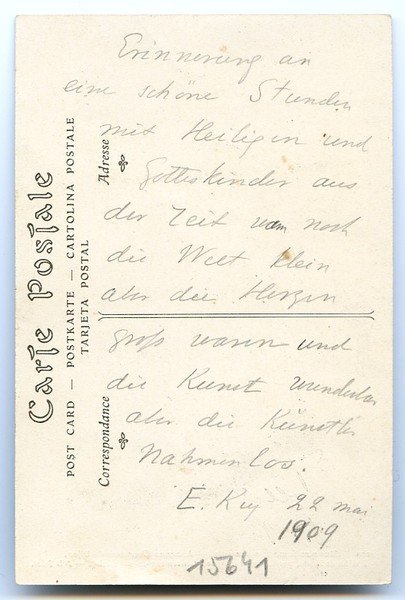 Carte Postale
POST CARD — POSTKARTE — CARTOLINA POSTALE
TARJETA POSTAL
Correspondance
Adresse
Erinnerung an
eine schöne Stunden
mit Heiligen und
Gotteskinder aus
der Zeit wan noch
die Welt klein
aber die Herzen
groß waren und
die Kunst wunderbar
aber die Künstler
Nahmenlos.
E. Key 22 mai
1909
15641